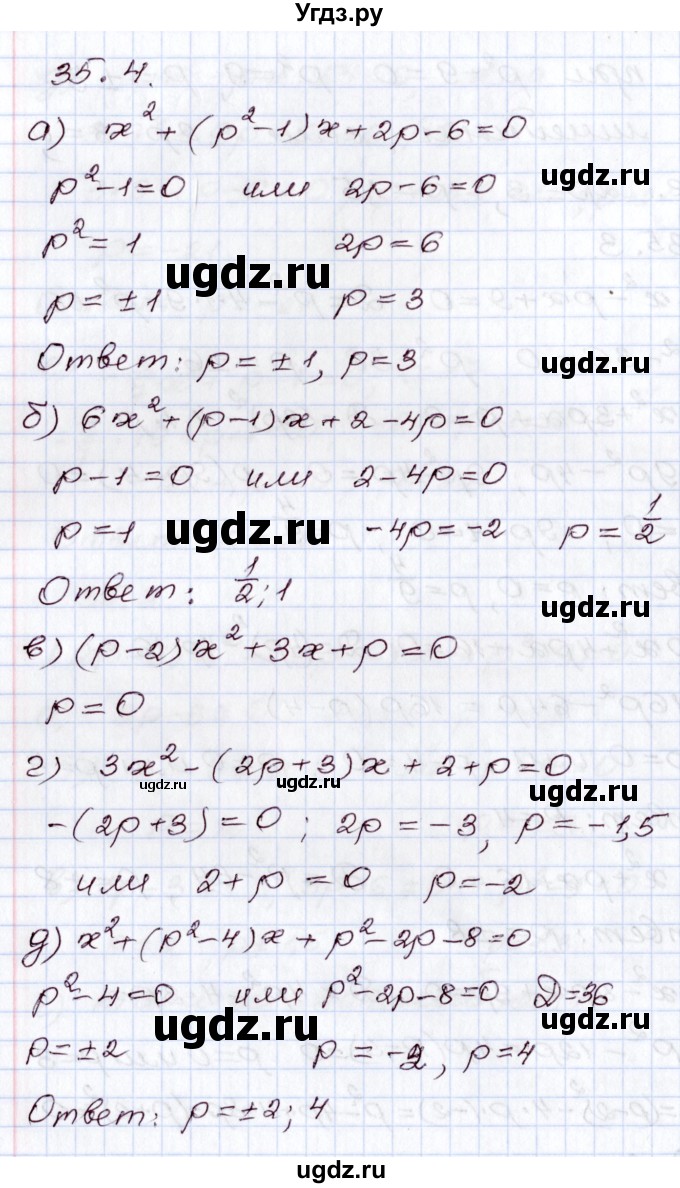 Угдз.ру
35.4.
а) x²+(p²-1)x+2p-6=0
p²-1=0 или 2p-6=0
ugdz.ru
p²=1 2p=6
ugdz.ru
p=±1 p=3
Ответ: p=±1, p=3
ugdz.ru
б) 6x²+(p-1)x+2-4p=0
p-1=0 или 2-4p=0
p=1 ugdz.ru -4p=-2 p=1/2
Ответ: 1/2; 1
ugdz.ru
в) (p-2)x²+3x+p=0
p=0
г) 3x²-(2p+3)x+2+p=0
ugdz.ru ugdz.ru ugdz.ru
-(2p+3)=0; 2p=-3, p=-1,5
или 2+p=0 p=-2
д) x²+(p²-4)x+p²-2p-8=0
p²-4=0 или p²-2p-8=0 D=36
ugdz.ru ugdz.ru
p=±2 p=-2, p=4
Ответ: p=±2; 4
ugdz.ru